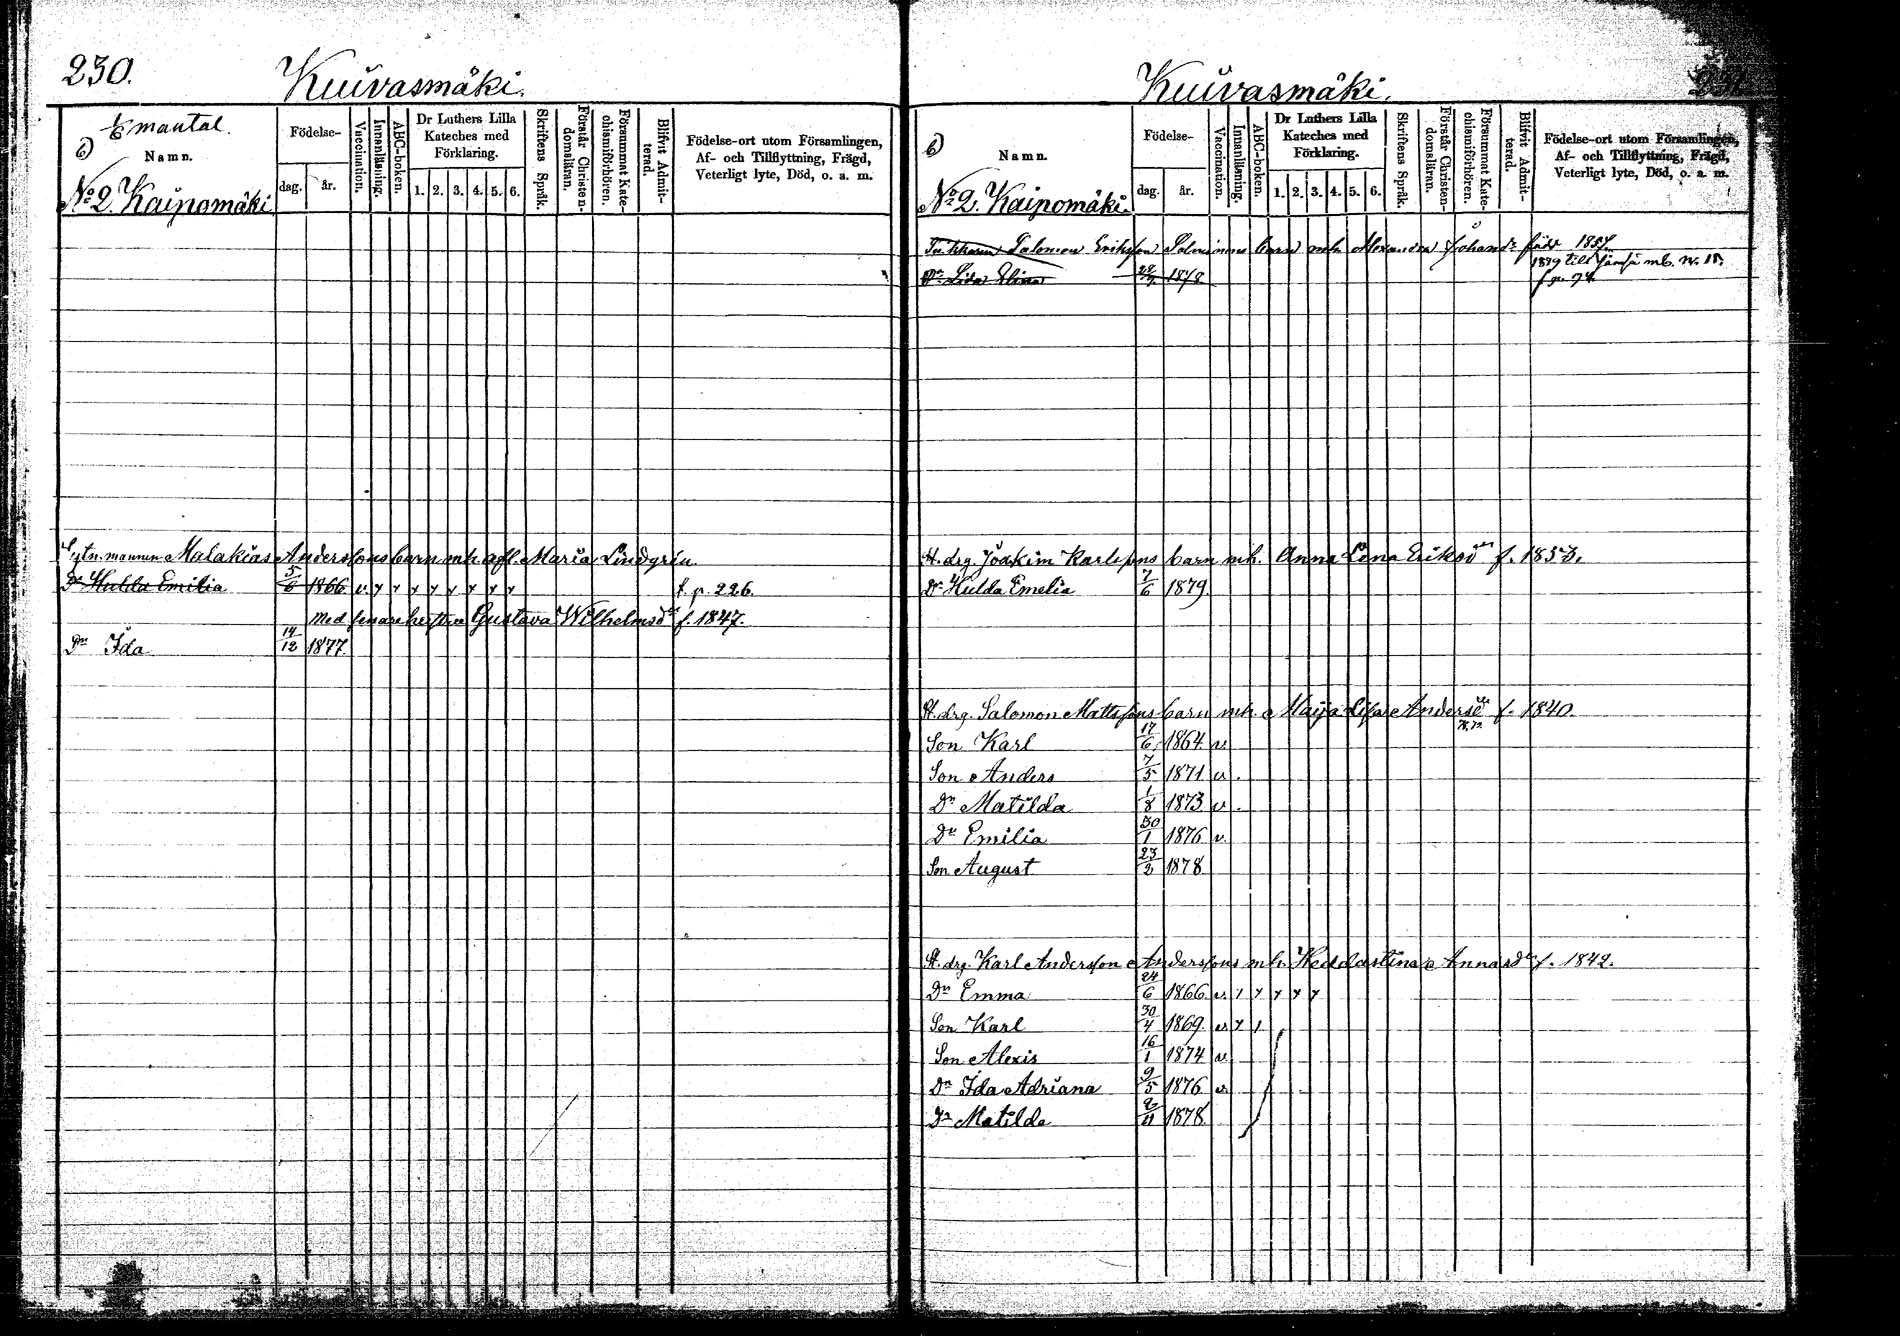 230.
Kuivasmäki.
1/6 mantal.
6)
Namn.
No 2. Kaipomäki
Födelse-
dag.
år.
Vaccination.
Innanläsning.
ABC-boken.
Dr Luthers Lilla
Kateches med
Förklaring.
1. 2. 3. 4. 5. 6.
Skriftens Språk.
Förstår Christen-
domsläran.
Försummat Kate-
chismiförhören.
Blifvit Admit-
terad.
Födelse-ort utom Församlingen,
Af- och Tillflyttning, Frägd,
Veterligt lyte, Död, o. a. m.
Malakias Anderssons barn mh. afl. Maria Lindgrén.
Dr Hulda Emilia 5/6 1866 v. f. p. 226.
Med senare hustru Gustava Wilhelmsdr f. 1847.
Dr Ida 14/12 1877.
231
Kuivasmäki.
6)
Namn.
No 2. Kaipomäki.
Födelse-
dag.
år.
Vaccination.
Innanläsning.
ABC-boken.
Dr Luthers Lilla
Kateches med
Förklaring.
1. 2. 3. 4. 5. 6.
Skriftens Språk.
Förstår Christen-
domsläran.
Försummat Kate-
chismiförhören.
Blifvit Admit-
terad.
Födelse-ort utom Församlingen,
Af- och Tillflyttning, Frägd,
Veterligt lyte, Död, o. a. m.
Salomon Eriksson barn mh Alexandra Johansdr född 1857.
1879 till Jämsä mb. N. 18.
Dr Lida Elina 1878
St. drg. Joakim Karlssons barn mh. Anna Lena Eriksdr f. 1853.
Dr Hulda Emelia 7/6 1879.
St. drg. Salomon Mattssons barn mh. Maija Lisa Andersdr f. 1840.
Son Karl 17/6 1864 v.
Son Anders 7/5 1871 v.
Dr Matilda 1/8 1873 v.
Dr Emilia 30/1 1876 v.
Son August 23/2 1878
St. drg. Karl Andersson Anderssons mh. Heddastina Annasdr f. 1842.
Dr Emma 24/6 1866 v.
Son Karl 30/4 1869. v.
Son Alexis 16/1 1874 v.
Dr Ida Adriana 9/5 1876 v.
Dr Matilda 2/11 1878.